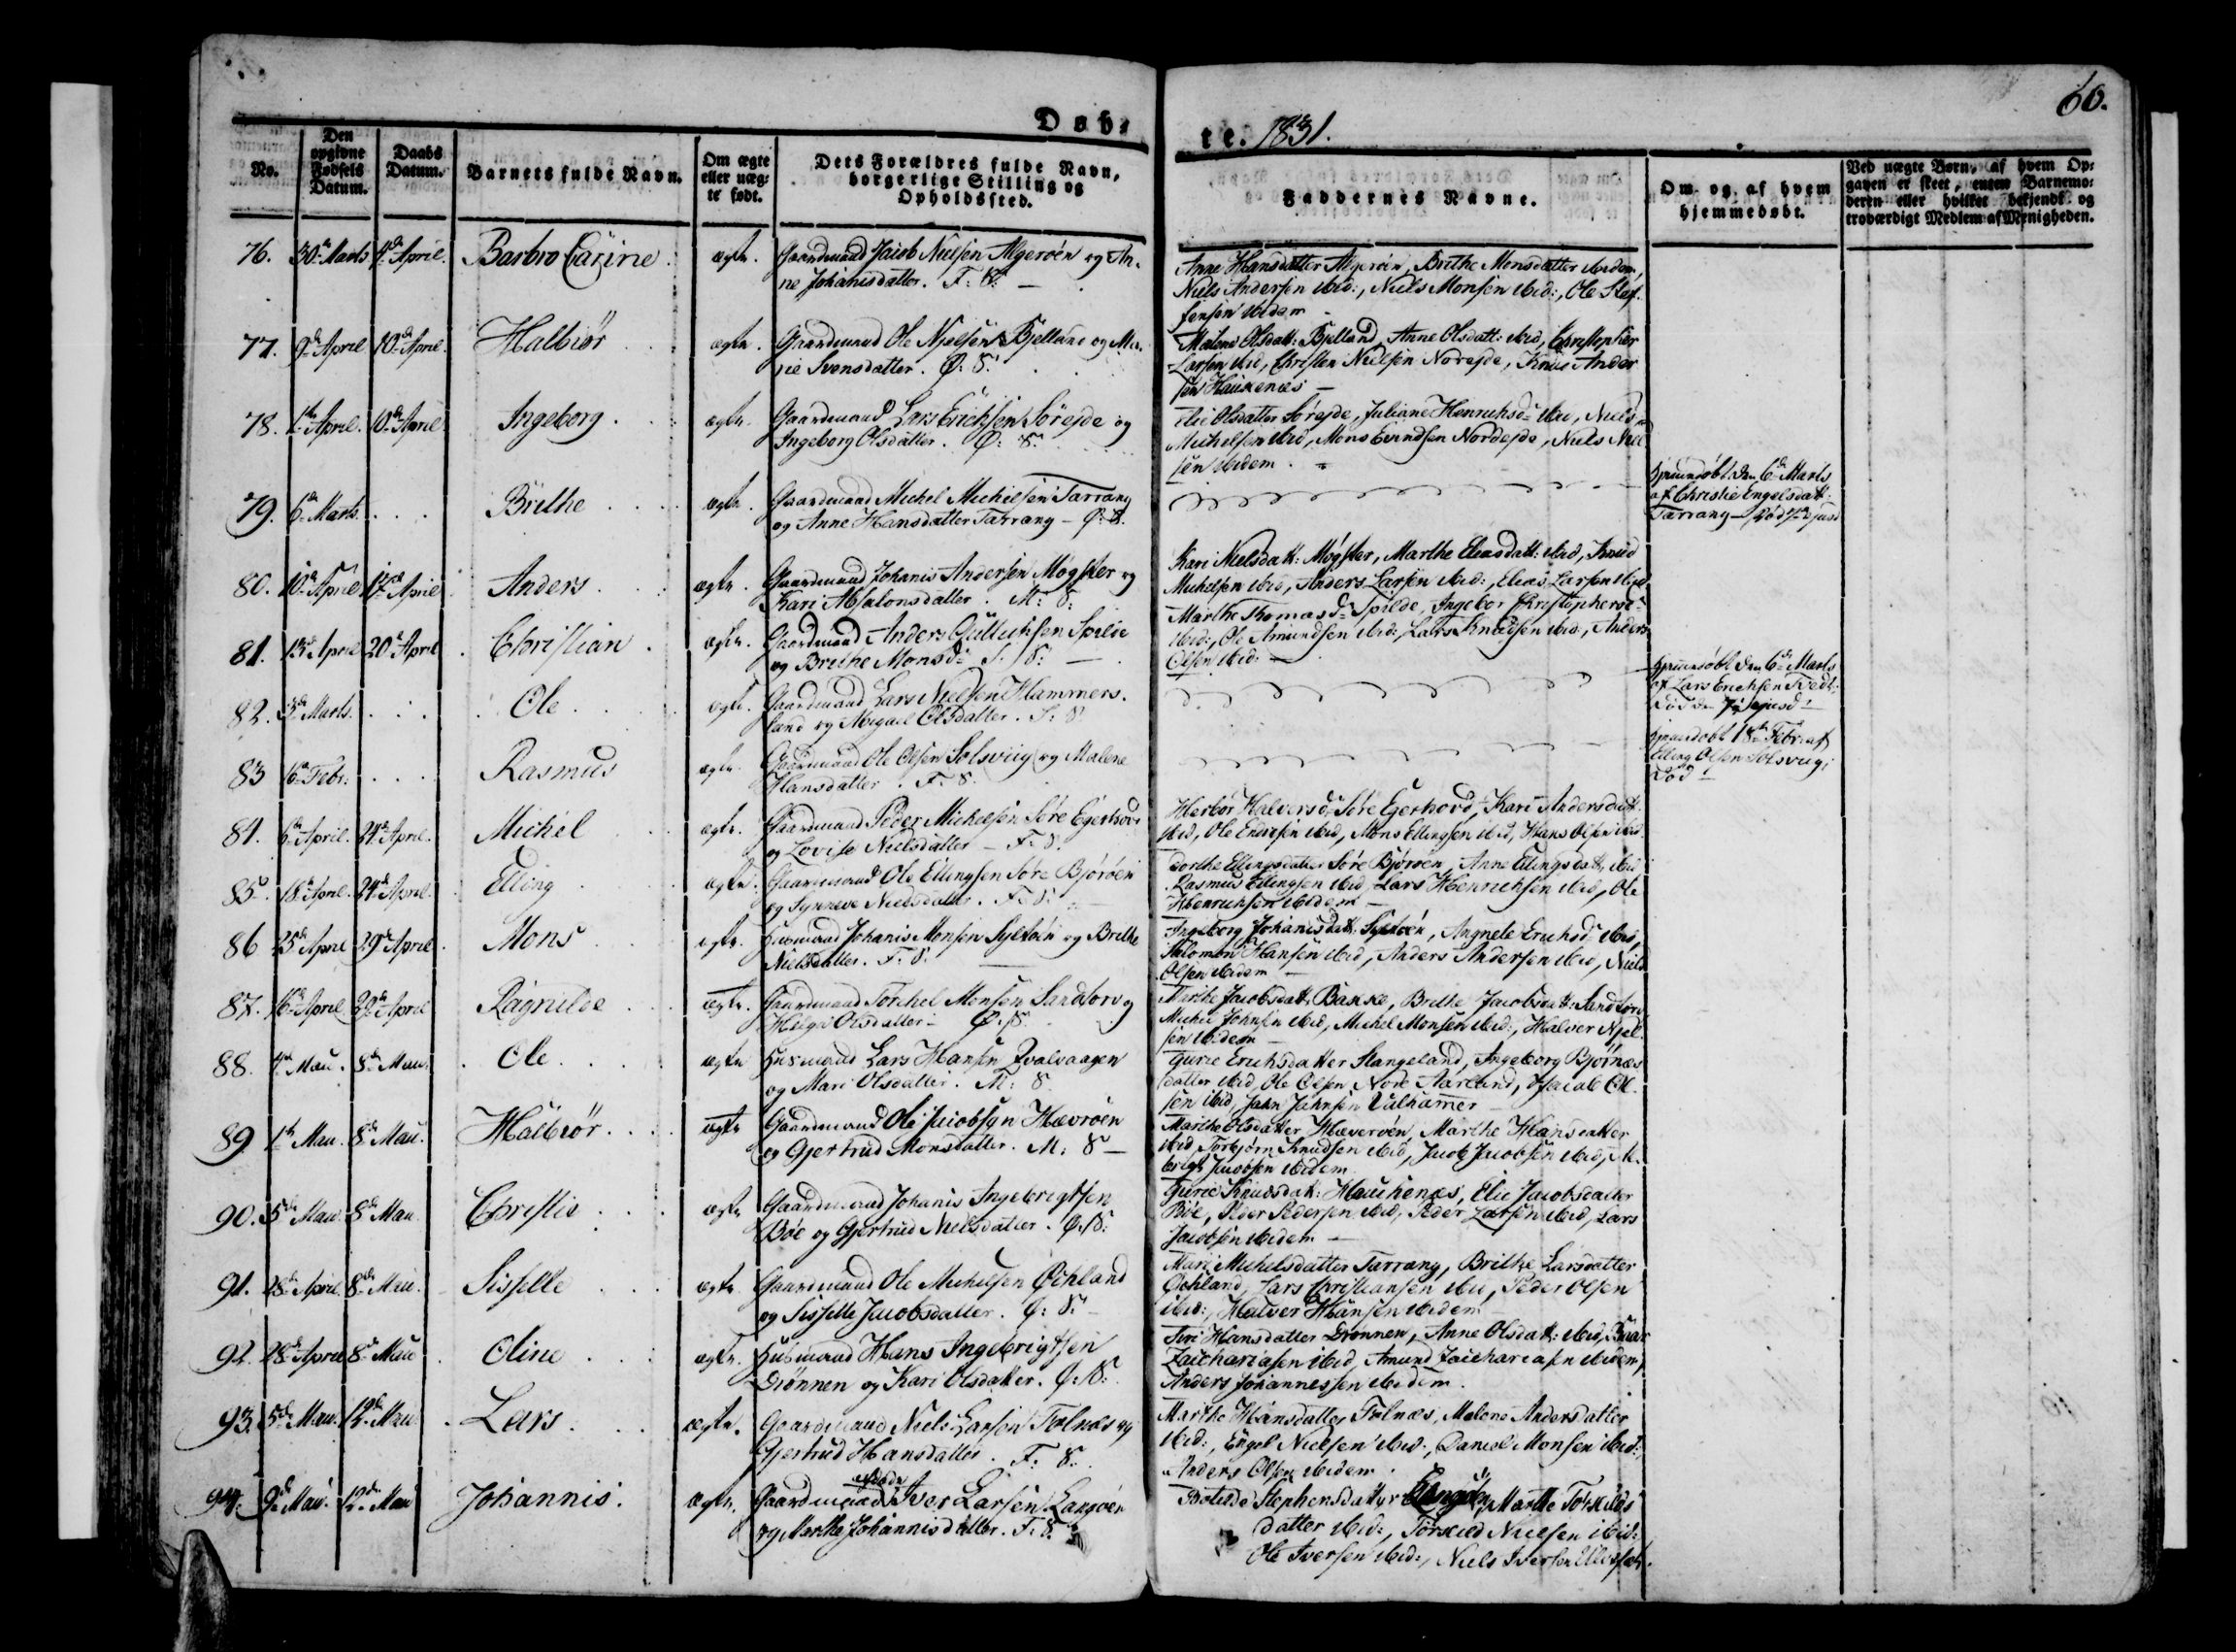 60.
Døb-
te. 1831.
No.
Den opgivne Fødsels Datum.
Daabs Datum.
Barnets fulde Navn.
Om ægte eller uæg-te født.
Dets Forældres fulde Navn, borgerlige Stilling og Opholdssted.
Faddernes Navne.
Om og af hvem hjemmedøbt.
Ved uægte Børn, af hvem Op-
gaven er skeet, enten Barnemo-
deren eller hvilket bekjendt og
troværdigt Medlem af Menigheden.
76. 30te Marts 4de April. Barbro Carine. ægte. Gaardmand Jacob Nielsen Algerøen og An-
ne Johanisdatter. F: S:
Anne Hansdatter Algerøen, Brithe Monsdatter ibidem,
Niels Andersen ibid:, Niels Monsen ibid:, Ole Stef-
fensen ibidem
77. 9de April 10de April Halbiør ægte. Gaardmand Ole Njelsen Bjelland og Ma-
rie Svensdatter. Ø: S:
Malene Olsdatt: Bjelland, Anne Olsdatt: ibid, Christopher
Larsen ibid, Christen Nielsen Norejde, Knud Ander
sen Haukenæs
78. 1te April. 10de April Ingeborg. ægte. Gaardmand Lars Erichsen Sørejde og
Ingeborg Olsdatter. Ø: S:
Elie Olsdatter Sørejde, Juliane Henrichsd: ibid, Niels
Michelsen ibid, Mons Evindsen Nordejde, Niels Niel
sen ibidem.
79. 6te Marts. Brithe ægte. Gaardmand Michel Michelsen Tarrang
og Anne Hansdatter Tarrang - Ø: S:
Hjemmedøbt den 6te Marts
af Christie Engelsdatt:
Tarrang - død
80. 10de April 17de April Anders. ægte. Gaardmand Johanis Andersen Møgster og
Kari Absalonsdatter. M: S:
Kari Nielsdatt: Møgster, Marthe Eliasdatt: ibid, Knud
Michelsen ibid, Anders Larsen ibid:, Elias Larsen ibid
81. 13de April 20de April Christian. ægte. Gaardmand Anders Gulluchsen Spilde
og Brithe Monsd: S: S:
Marthe Thomasd: Spilde, Ingebor Christophersd:
ibid:, Ole Amundsen ibid:, Lars Knudsen ibid:, Anders
Olsen ibid:
82. 3de Marts. Ole. ægte. Gaardmand Lars Nielsen Hammers-
land og Abigael Olsdatter. S: S:
Hjemmedøbt den 6te Marts
af Lars Erichsen Tvedt:
død
83 16de Febr: Rasmus ægte. Gaardmand Ole Olsen Solsviig og Malene
Hansdatter. F: S:
Hjemmedøbt 18de Febr: af
Elling Olsen Solsviig;
død
84. 6te April. 24de April. Michel ægte. Gaardmand Peder Michelsen Søre Egerhovd
og Lovise Nielsdatter - F: S:
Herbør Halversd: Søre Egerhovd, Kari Andersdatt.
ibid, Ole Endresen ibid, Mons Ellingsen ibid, Hans Olsen ibid.
85. 18de April. 24de April. Elling ægte. Gaardmand Ole Ellingsen Søre Bjørøen
og Synneve Nielsdatter. F: S:
Dorthe Ellingsdatter Søre Bjørøen, Anne Ellingsdatt, ibid
Rasmus Ellingsen ibid, Lars Henrichsen ibid, Ole
Henrichsen ibidem
86 25de April 29de April Mons ægte. Husmand Johanis Monsen Syltøen og Brithe
Nielsdatter. F: S:
Ingeborg Johanisdatt: Syltøen, Angnete Erichsd: ibid,
Salomon Hansen ibid, Anders Andersen ibid, Niels
Olsen ibidem
87. 16de April 29de April Ragnilde ægte. Gaardmand Torchel Monsen Sandtorv og
Helge Olsdatter - Ø: S:
Marthe Jacobsdatt: Bakke, Brithe Jacobsdatt: Sandtorv
Michel Johnsen ibid, Michel Monsen ibid:, Halver Njel-
sen ibidem
88. 4de Maii. 8de Maii. Ole. ægte Husmand Lars Hansen Qvalvaagen
og Mari Olsdatter. M: S:
Gurie Erichsdatter Stangeland, Ingeborg Bjørnæs
datter ibid, Ole Olsen Nore Aarland, Jacob Ol-
sen ibid, Jahn Jahnsen Valhamer
89 1te Maii. 8de Maii. Halbiør. ægte Gaardmand Ole Jacobsen Hævrøen
og Gjertrud Monsdatter. M: S
Marthe Olsdatter Hæverøen, Marthe Hansdatter
ibid, Torbjørn Knudsen ibid, Jacob Jacobsen ibid,
Jacobsen ibidem
90. 5de Maii 8de Maii Christie ægte Gaardmand Johanis Ingebrigtsen
Bøe og Gjertrud Nielsdatter. Ø: S:
Gurie Knudsdatt: Hauckenæs, Elie Jacobsdatter
Bøe, Peder Pedersen ibid, Peder Larsen ibid, Lars
Jacobsen ibidem
91. 28de April. 8de Maii. Sisselle ægte Gaardmand Ole Michelsen Øchland
og Sisselle Jacobsdatter. Ø: S:
Mari Michelsdatter Tarrang, Brithe Larsdatter
Øchland, Lars Christiansen ibid, Peder Olsen
ibid:, Halver Hansen ibidem
92. 28de April 8de Maii. Oline ægte. Husmand Hans Ingebrigtsen
Drønnen og Kari Olsdatter. Ø: S:
Siri Hansdatter Drønnen, Anne Olsdatt: ibid,
Zachariasen ibid, Amund Zachariasen ibidem,
Anders Johannessen ibidem.
93. 5de Maii. 12de Maii Lars. ægte. Gaardmand Niels Larsen Følnæs og
Gjertrud Hansdatter. F: S:
Marthe Hansdatter Følnæs, Malene Andersdatter
ibid:, Engel Nielsen ibid:, Daniel Monsen ibid:,
Anders Olsen ibidem.
94. 9de Maii. 12de Maii Johannis. ægte. Gaardmand Iver Larsen Langøen
og Marthe Johannisdatter. F: S:
Stephensdatter Marthe Torkilds
datter ibid:, Torkild Nielsen ibid:
Ole Iversen ibid:, Niels Iversen